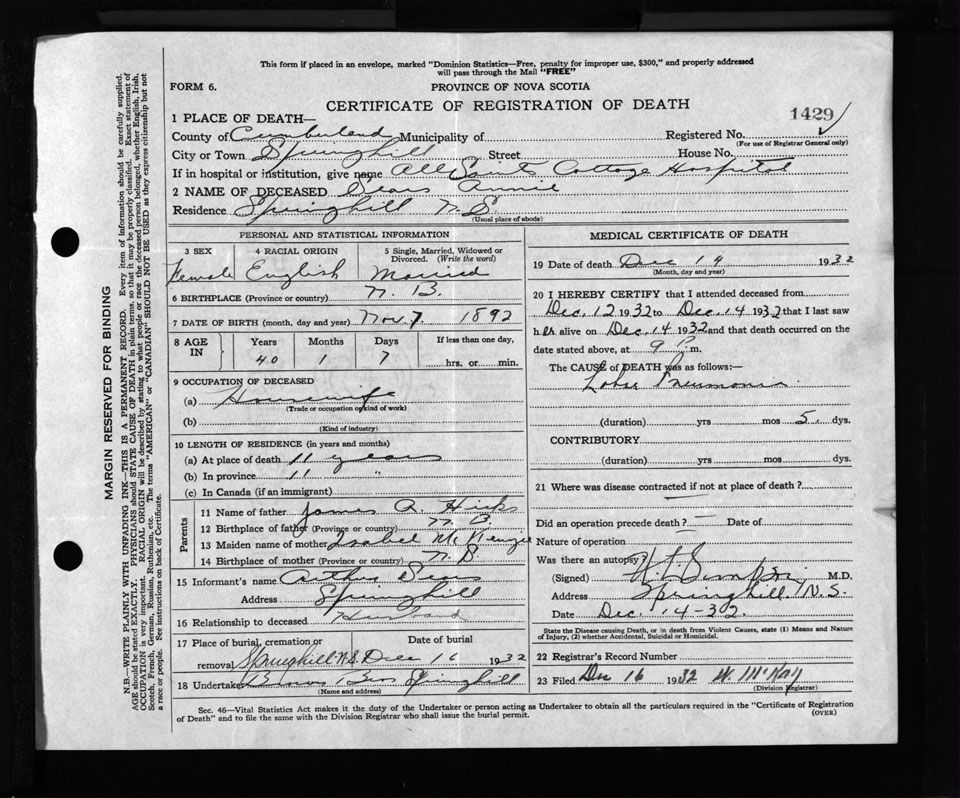 This form if placed in an envelope, marked "Dominion Statistics—Free, penalty for improper use, $300," and properly addressed
will pass through the Mail "FREE"
FORM 6.
PROVINCE OF NOVA SCOTIA
CERTIFICATE OF REGISTRATION OF DEATH
1429
1 PLACE OF DEATH—
County of Cumberland Municipality of Registered No.
(For use of Registrar General only)
City or Town Springhill Street House No.
If in hospital or institution, give name All Saints Cottage Hospital
2 NAME OF DECEASED Sears Annie
Residence Springhill N.S.
(Usual place of abode)
PERSONAL AND STATISTICAL INFORMATION
3 SEX 4 RACIAL ORIGIN 5 Single, Married, Widowed or
Divorced. (Write the word)
Female English Married
6 BIRTHPLACE (Province or country) N. B.
7 DATE OF BIRTH (month, day and year) Nov. 7 1892
8 AGE IN Years Months Days If less than one day,
40 1 7 hrs. or min.
9 OCCUPATION OF DECEASED
(a) Housewife
(Trade or occupation or kind of work)
(b)
(Kind of industry)
10 LENGTH OF RESIDENCE (in years and months)
(a) At place of death 11 years
(b) In province 11 "
(c) In Canada (if an immigrant)
Parents
11 Name of father James A. Hicks
12 Birthplace of father (Province or country) N. B.
13 Maiden name of mother Isabel McKenzie
14 Birthplace of mother (Province or country)
15 Informant's name Arthur Sears
Address Springhill
16 Relationship to deceased Husband
17 Place of burial, cremation or Date of burial
removal Springhill N.S. Dec 16 1932
18 Undertaker Brown Bros Springhill
(Name and address)
MEDICAL CERTIFICATE OF DEATH
19 Date of death Dec 14 1932
(Month, day and year)
20 I HEREBY CERTIFY that I attended deceased from
Dec. 12 1932 to Dec. 14 1932 that I last saw
her alive on Dec. 14 1932 and that death occurred on the
date stated above, at 9 P m.
The CAUSE of DEATH was as follows:—
Lobar Pneumonia
(duration) yrs mos 5 dys.
CONTRIBUTORY
(duration) yrs mos dys.
21 Where was disease contracted if not at place of death?
Did an operation precede death? — Date of
Nature of operation
Was there an autopsy?
(Signed) Simpson M.D.
Address Springhill, N.S.
Date Dec. 14-32.
State the Disease causing Death, or in death from Violent Causes, state (1) Means and
Nature of Injury, (2) whether Accidental, Suicidal or Homicidal.
22 Registrar's Record Number
23 Filed Dec 16 1932 W. McKay
(Division Registrar)
Sec. 46—Vital Statistics Act makes it the duty of the Undertaker or person acting as Undertaker to obtain all the particulars required in the "Certificate of Registration
of Death" and to file the same with the Division Registrar who shall issue the burial permit.
(OVER)
MARGIN RESERVED FOR BINDING
N.B.—WRITE PLAINLY WITH UNFADING INK—THIS IS A PERMANENT RECORD. Every item of information should be carefully supplied.
AGE should be stated EXACTLY. PHYSICIANS should STATE CAUSE OF DEATH in plain terms, so that it may be properly classified. Exact statement of
OCCUPATION is very important. RACIAL ORIGIN will be described by stating to what people or race the deceased person belonged, whether English, Irish,
Scotch, French, German, Russian, Ruthenian, etc. The terms "AMERICAN" or "CANADIAN" SHOULD NOT BE USED as they express citizenship but not
a race or people. See instructions on back of Certificate.